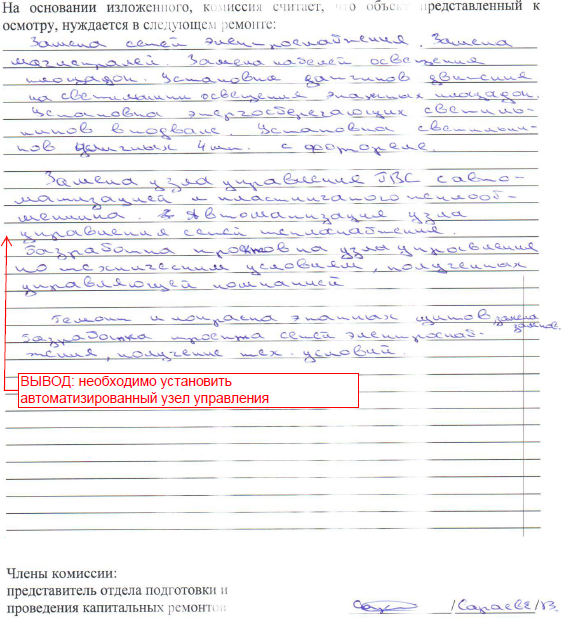 На основании изложенного, комиссия считает, что объект представленный к
осмотру, нуждается в следующем ремонте:
Замена сетей электроснабжения. Замена
магистралей. Замена кабелей освещения
площадок. Установка датчиков движения
на светильники освещения этажных площадок.
Установка энергосберегающих светиль-
ников в подвале. Установка светильни-
ков уличных 4 шт. с фотореле.
Замена узла управления ГВС с авто-
матизацией и пластинчатого теплооб-
менника. Автоматизация узла
управления сетей теплоснабжения.
Разработка проектов на узла управления
по техническим условиям, полученных
управляющей компанией
Ремонт и покраска этажных щитов, замена
замков.
Разработка проекта сетей электроснаб-
жения, получение тех. условий.
ВЫВОД: необходимо установить
автоматизированный узел управления
Члены комиссии:
представитель отдела подготовки и
проведения капитальных ремонтов